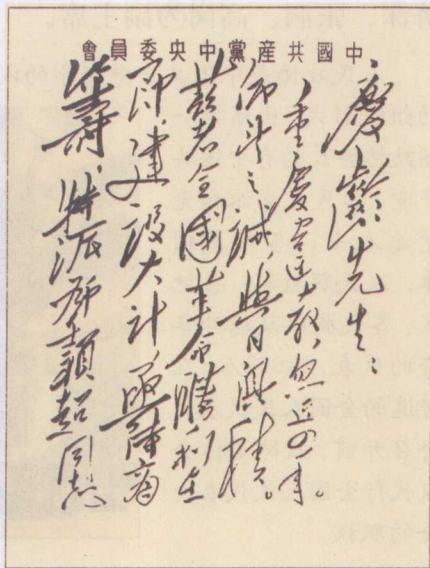 中國共產黨中央委員會
慶齡先生:
重慶違教,忽近四年。
仰望之誠,與日俱積。
茲者全國革命勝利在
即,建設大計,亟待商
籌,特派鄧穎超同志